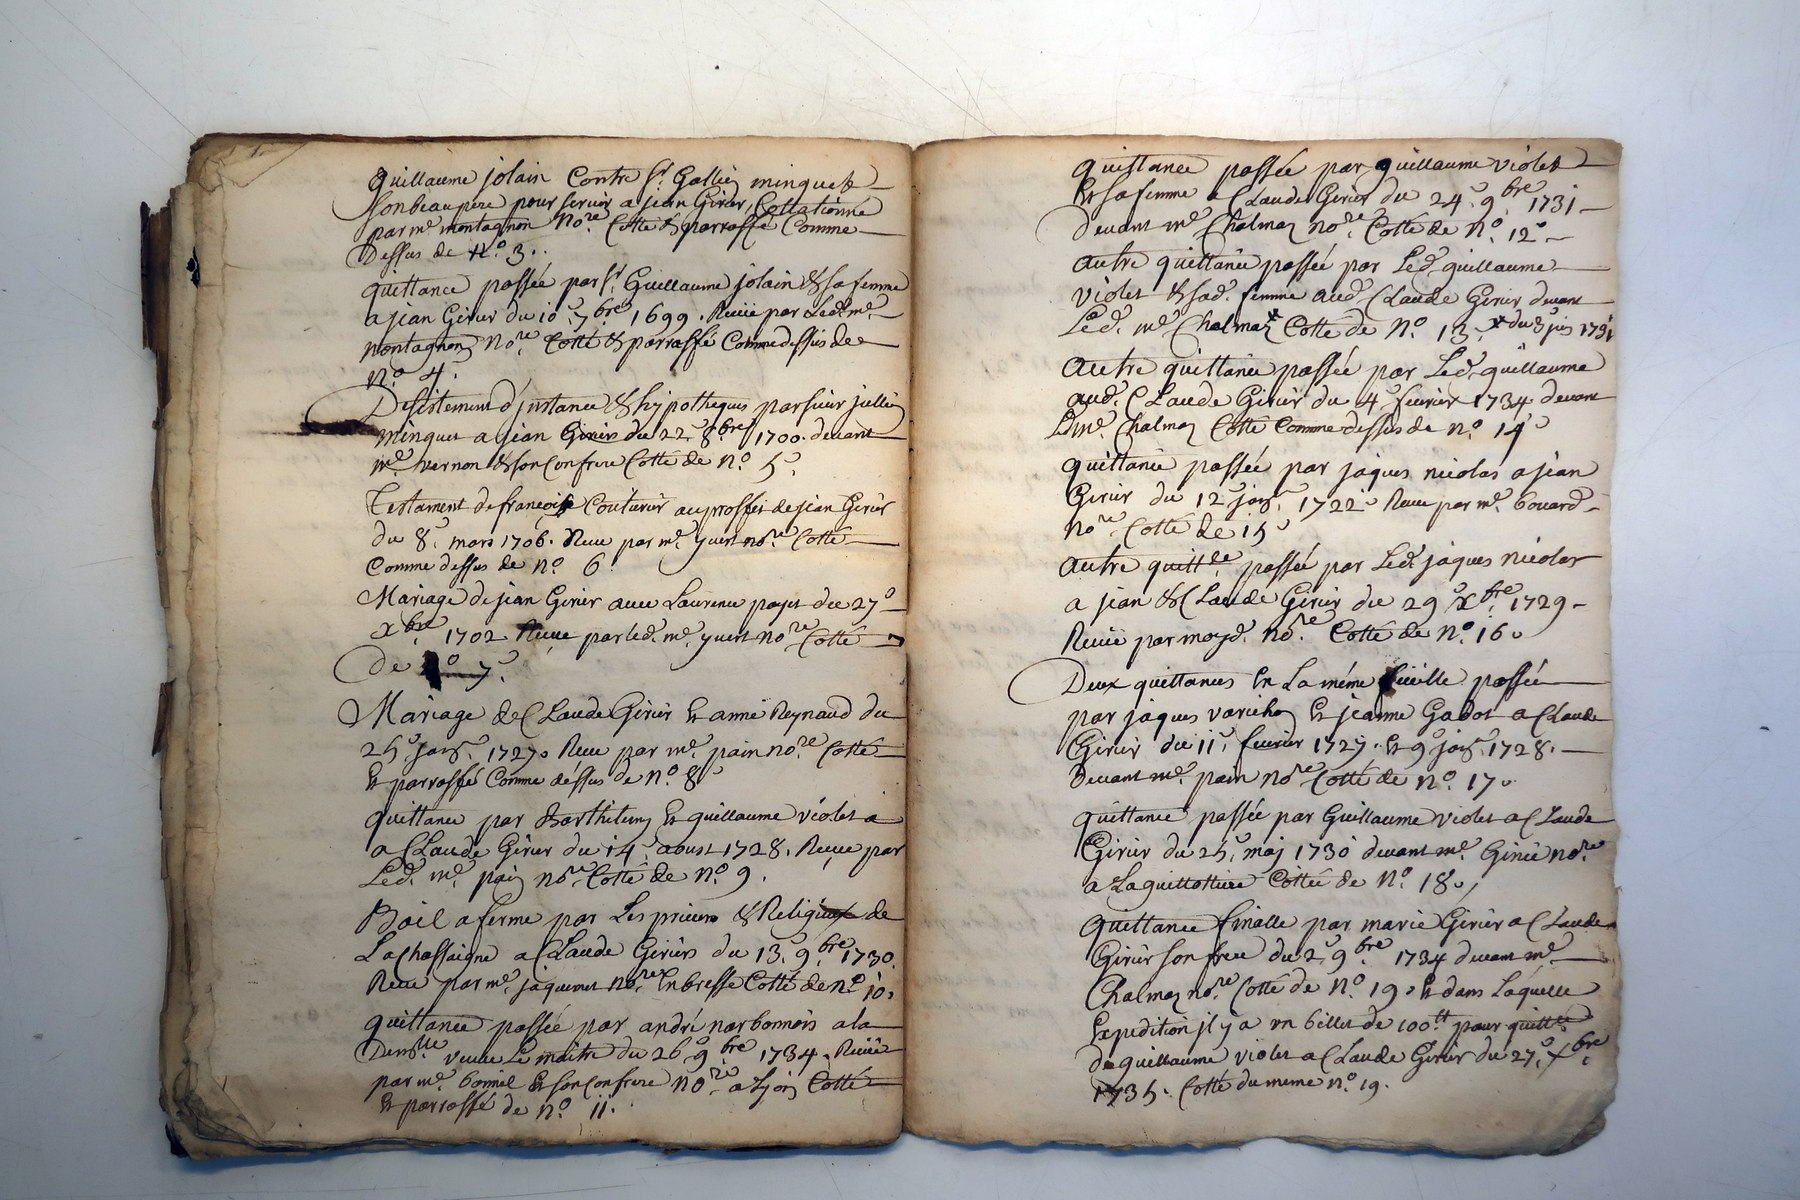 Guillaume jolain Contre sr. Gallien minquet
son beau pere pour servir a jean Girier, Collationné
par me. montagnon Nore. Cotté & parraffé Comme
Dessus de N.o 3.
quittance passée par sr. Guillaume jolain & sa femme
a jean Girier du 10.e 7.bre 1699. Reciie par Led. me.
montagnon Nore. Cotté & parraffé Comme dessus de
N.o 4.
Desistement d'instance & hypotheques par sieur jullien
minquet a jean Girier du 22.e 8.bre 1700. devant
me. vernon & son Confrere Cotté de N.o 5.
Testament de françoise Couturier au proffit de jean Girier
du 8.e mars 1706. Recue par me. yvert nore. Cotté
Comme dessus de N.o 6.
Mariage de jean Girier avec Laurence pajet du 27.e
Xbre. 1702 Recue par led. me. yvert nore. Cotté
de N.o 7.
Mariage de Claude Girier & anne Reynaud du
25.e janr. 1727. Recue par me. pain nore. Cotté
& parraffé Comme dessus de N.o 8
quittance par Barthelemy & guillaume violet a
a Claude Girier du 14.e aoust 1728. Recue par
Led. me. pain nore. Cotté de N.o 9.
Bail a ferme par Les prieurs & Religieux de
La Chassaigne a Claude Girier du 13.e 9.bre 1730.
Recue par me. jaquemet nore. En bresse Cotté de N.o 10.
quittance passée par andré narbonnois a la
Demlle. veuve Le maitre du 26.e 9.bre 1734. Reciie
par me. bonnel & son Confrere Nore. a Lyon Cotté
& parraffé de N.o 11.
quittance passée par guillaume violet
& sa femme a Claude Girier du 24.e 9.bre 1731
Devant me. Chalman nore. Cotté de N.o 12.
autre quittance passée par Led. guillaume
violet & sad. femme aud. Claude Girier devant
Led. me. Chalman* Cotté de N.o 13. *du 8.e jin 1731
autre quittance passée par Led. guillaume
aud. Claude Girier du 4.e fevrier 1734 devant
Led. me. Chalman Cotté Comme dessus de N.o 14
quittance passée par jaques nicolas a jean
Girier du 12.e janr. 1722. Recue par me. bouard
nore. Cotté de 15
autre quittce. passée par Led. jaques nicolas
a jean & Claude Girier du 29.e Xbre. 1729
Reciie par moyd. nore. Cotté de N.o 16.
Deux quittances En La méme feüille passée
par jaques varichon & jeanne Gabot a Claude
Girier du 11.e fevrier 1727. & 9.e janr. 1728.
devant me. pain nore. Cotté de N.o 17.
quittance passée par Guillaume violet a Claude
Girier du 25.e maj 1730 devant me. Ginie nore.
a Laguillottiere Cottée de N.o 18.
quittance finalle par marie Girier a Claude
Girier son frere du 2.e 9.bre 1734 devant me.
Chalman nore. Cotté de N.o 19. & dans Laquelle
Expedition il y a un billet de 100tt pour quittce
de guillaume violet a Claude Girier du 27.e Xbre
1735. Cotté du meme n.o 19.